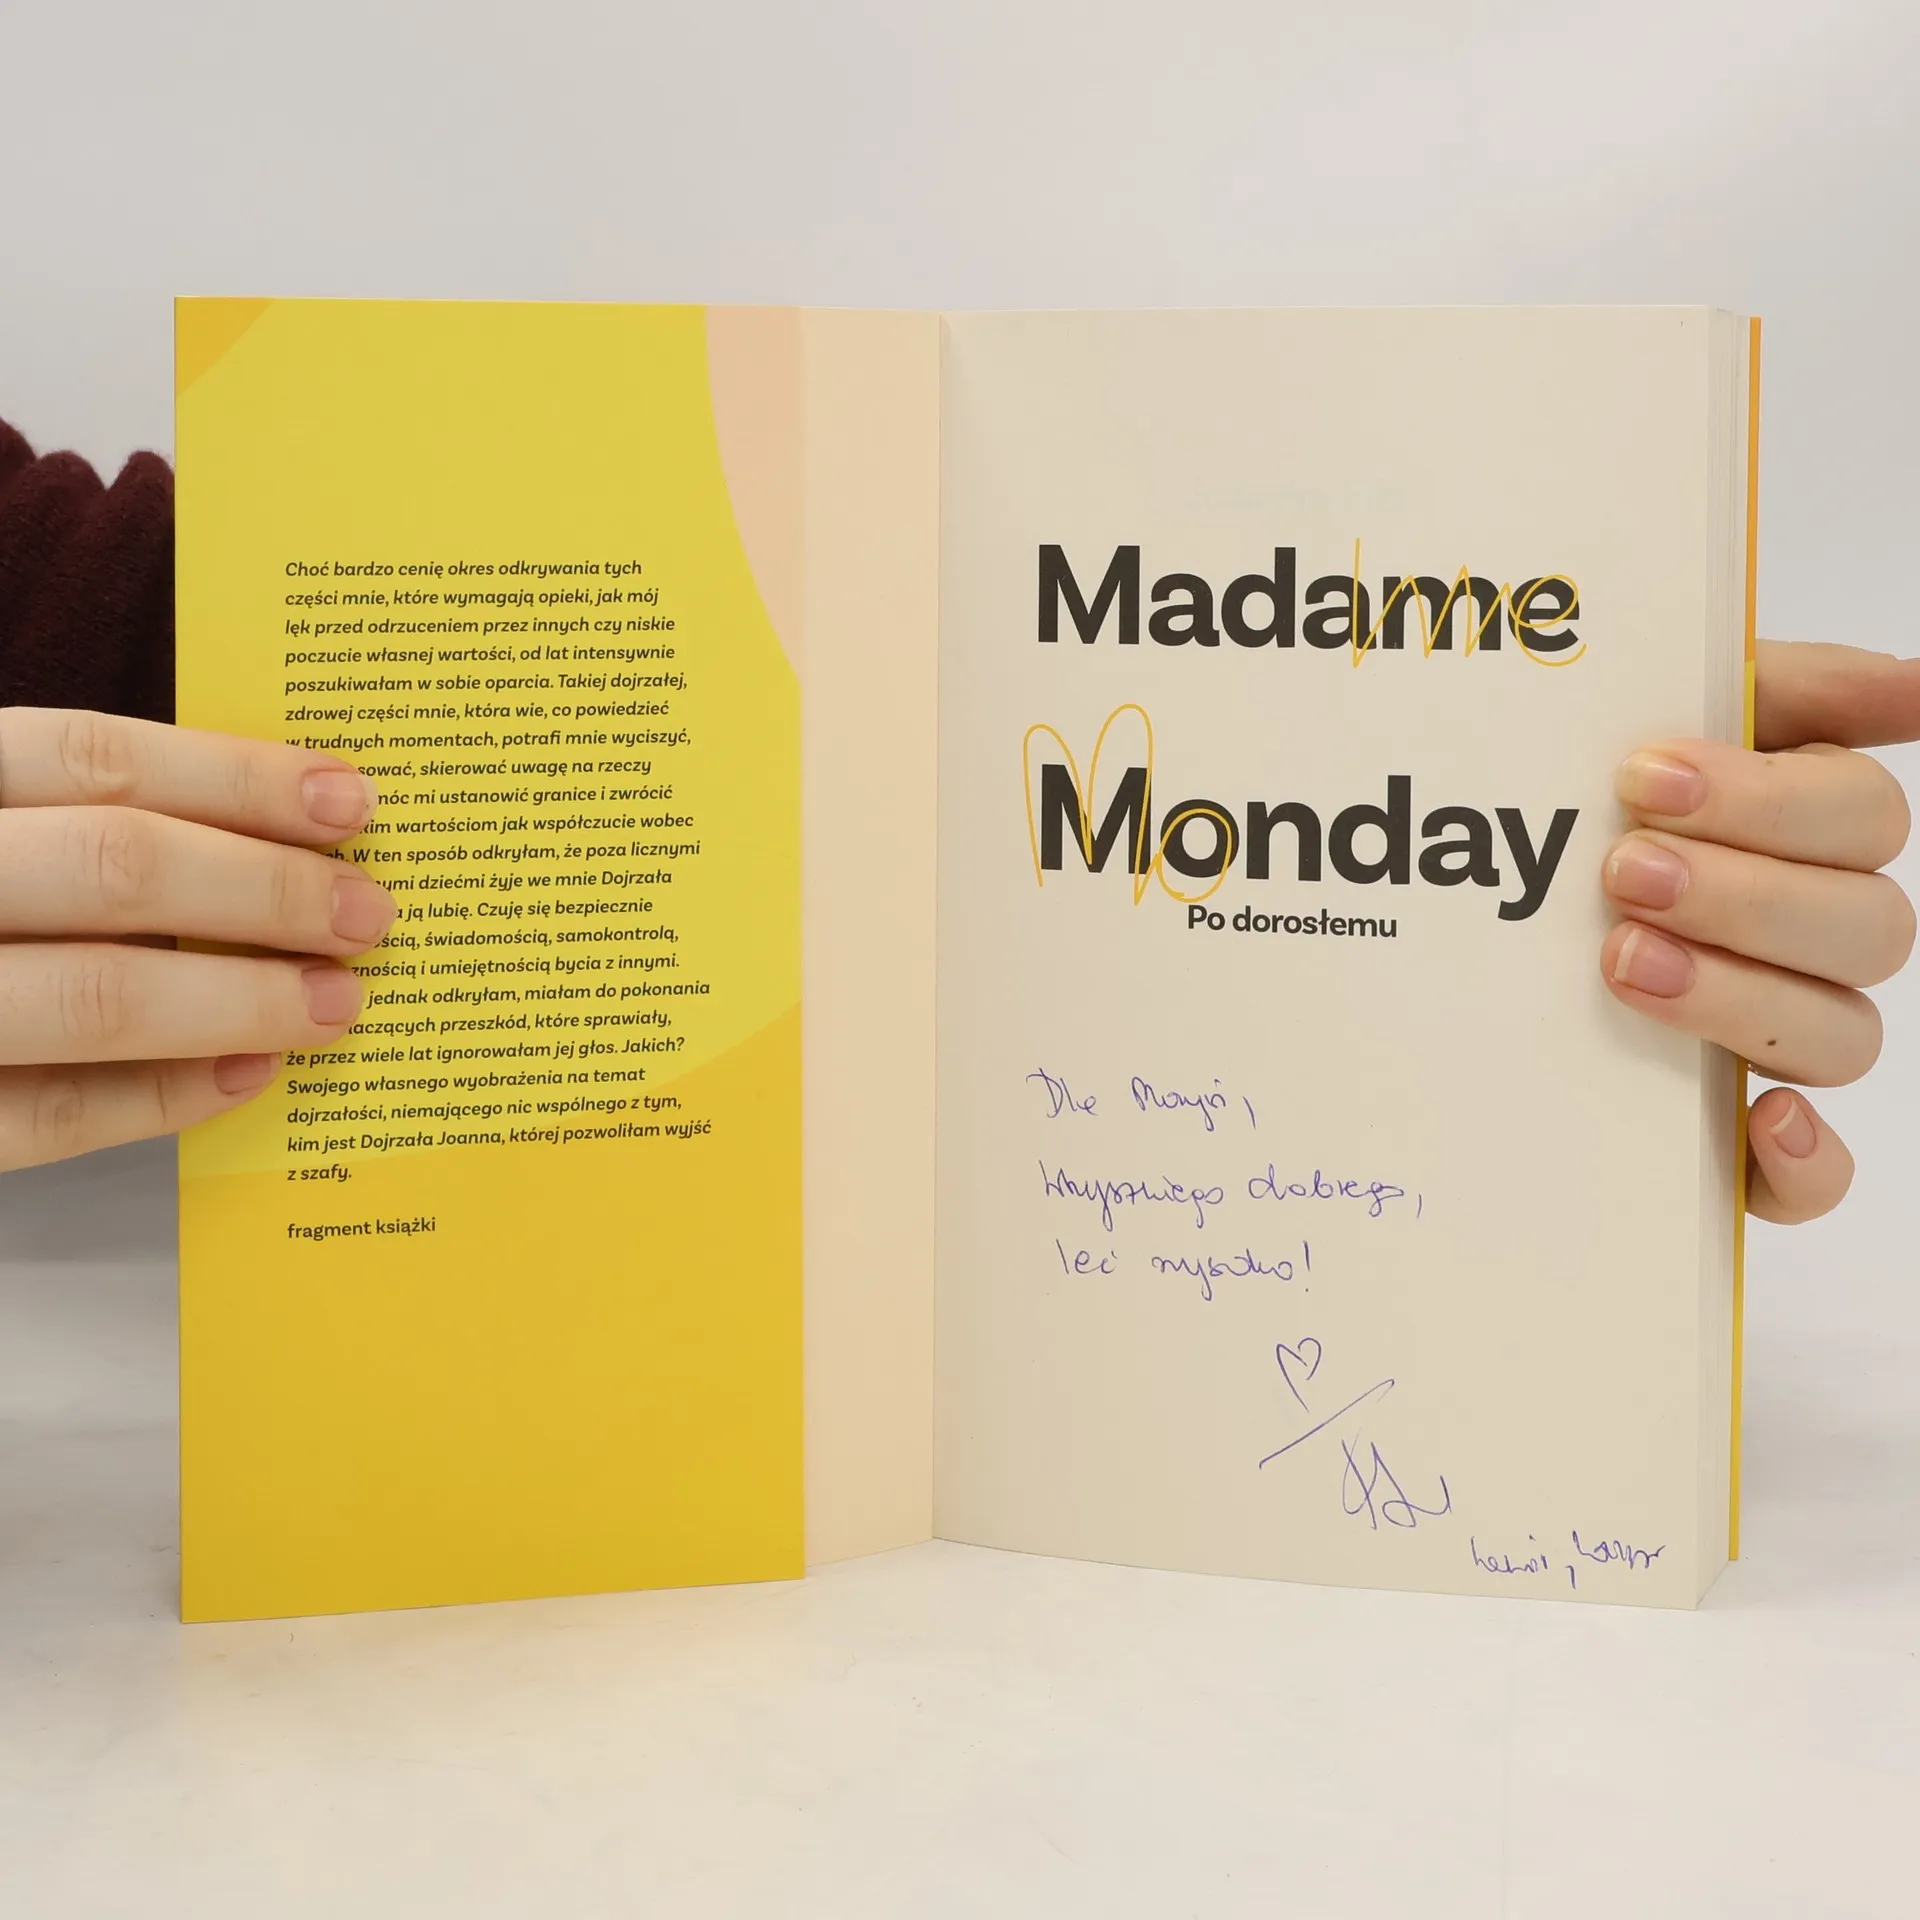 Choć bardzo cenię okres odkrywania tych
części mnie, które wymagają opieki, jak mój
lęk przed odrzuceniem przez innych czy niskie
poczucie własnej wartości, od lat intensywnie
poszukiwałam w sobie oparcia. Takiej dojrzałej,
zdrowej części mnie, która wie, co powiedzieć
w trudnych momentach, potrafi mnie wyciszyć,
sować, skierować uwagę na rzeczy
móc mi ustanowić granice i zwrócić
kim wartościom jak współczucie wobec
ch. W ten sposób odkryłam, że poza licznymi
ymi dziećmi żyje we mnie Dojrzała
a ją lubię. Czuję się bezpiecznie
ścią, świadomością, samokontrolą,
znością i umiejętnością bycia z innymi.
jednak odkryłam, miałam do pokonania
aczących przeszkód, które sprawiały,
że przez wiele lat ignorowałam jej głos. Jakich?
Swojego własnego wyobrażenia na temat
dojrzałości, niemającego nic wspólnego z tym,
kim jest Dojrzała Joanna, której pozwoliłam wyjść
z szafy.
fragment książki
Madame
Monday
Po dorosłemu
Dla Marysi,
wszystkiego dobrego,
leć wysoko!